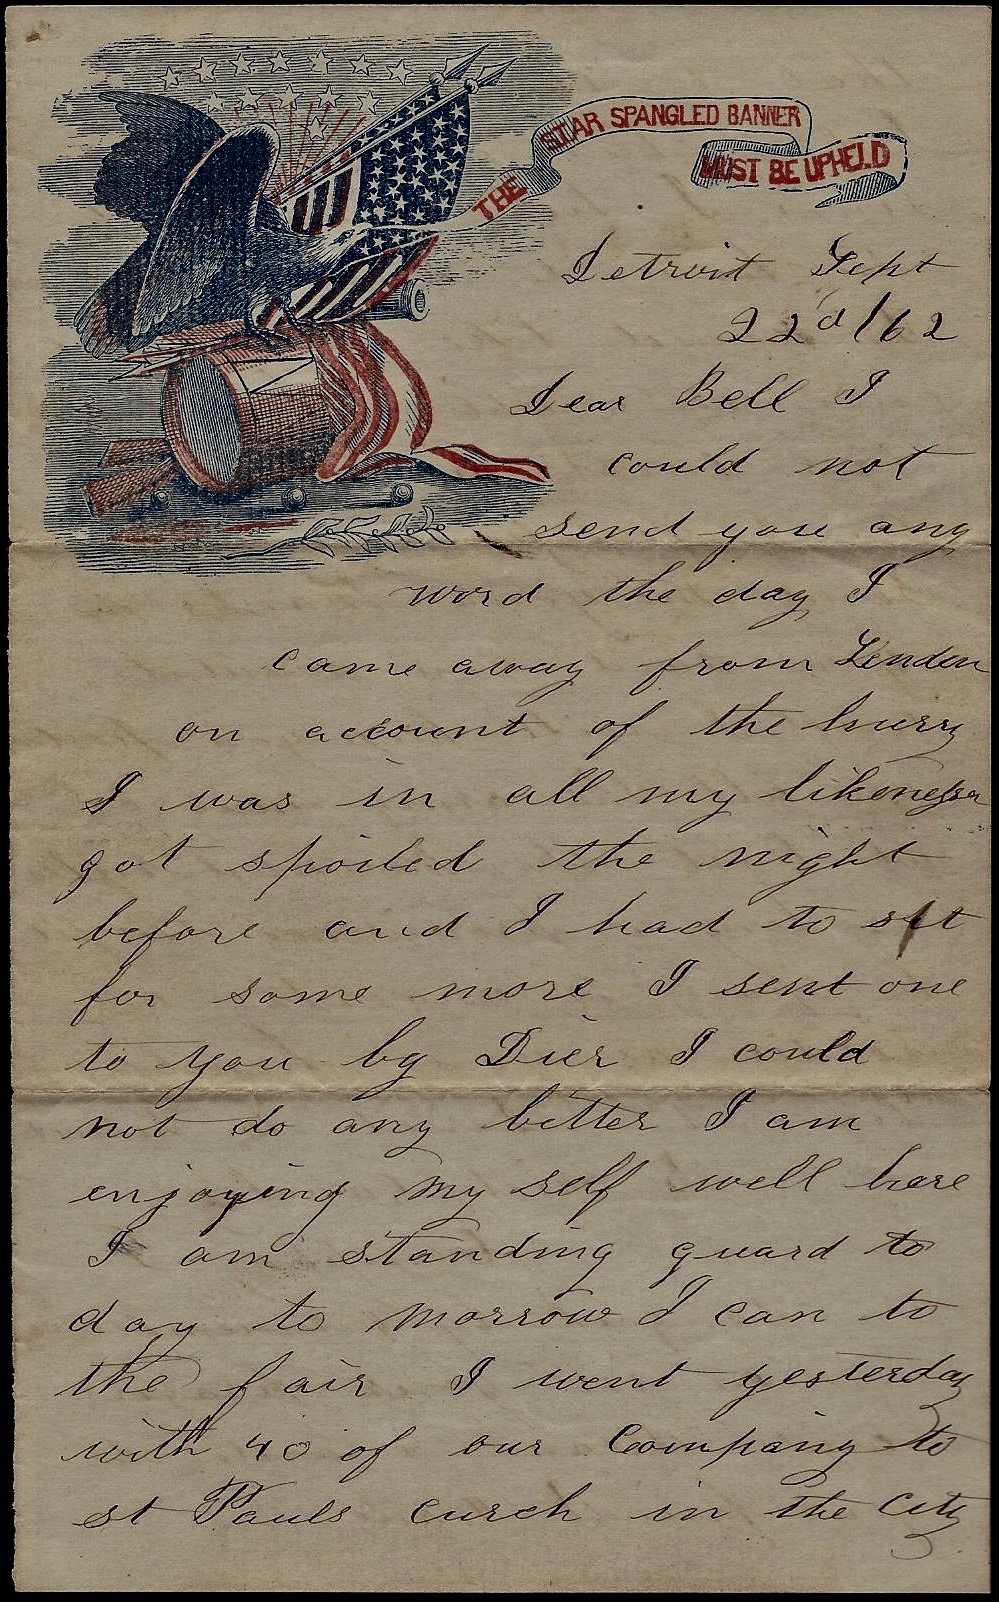 THE STAR SPANGLED BANNER
MUST BE UPHELD
Detroit Sept
22d/62
Dear Bell I
could not
send you any
word the day I
came away from Linden
on account of the hurry
I was in all my likenesses
got spoiled the night
before and I had to sit
for some more I sent one
to you by Dier I could
not do any better I am
enjoying my self well here
I am standing guard to
day to morrow I can to
the fair I went yesterday
with 40 of our Company to
st Pauls curch in the City